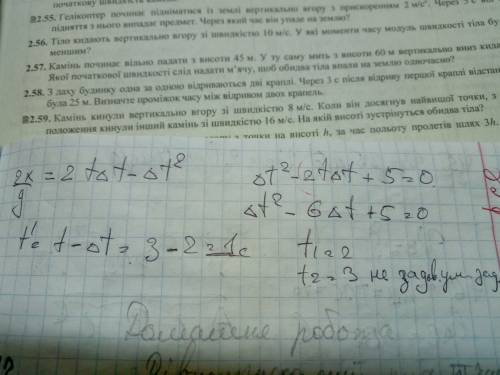 початкову швидкість
2.55. Гелікоптер починає підніматися із землі вертикально вгору з прискоренням 2 м/с². Через 5 с
підняття з нього випадає предмет. Через який час він упаде на землю?
2.56. Тіло кидають вертикально вгору зі швидкістю 16 м/с. У які моменти часу модуль швидкості тіла бу
меншим?
2.57. Камінь починає вільно падати з висоти 45 м. У ту саму мить з висоти 60 м вертикально вниз кидают
Якої початкової швидкості слід надати м'ячу, щоб обидва тіла впали на землю одночасно?
2.58. З даху будинку одна за одною відриваються дві краплі. Через 3 с після відриву першої краплі відстан
була 25 м. Визначте проміжок часу між відривом двох крапель.
2.59. Камінь кинули вертикально вгору зі швидкістю 8 м/с. Коли він досягнув найвищої точки, з
положення кинули інший камінь зі швидкістю 16 м/с. На якій висоті зустрінуться обидва тіла?
з точки на висоті h, за час польоту пролетів шлях 3h.
2x/g = 2t∆t-∆t²
∆t²-2t∆t+5=0
∆t²-6∆t+5=0
t'= t-∆t= 3-2=1c
t1=2
t2=3 не задовум. зад
Домашня робота